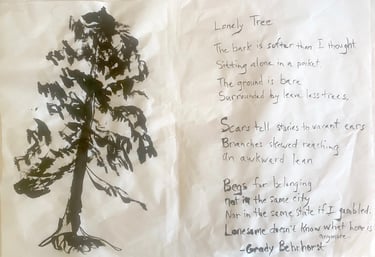 Lonely Tree
The bark is softer than I thought
Sitting alone in a pocket
The ground is bare
Surrounded by leave less trees.
Scars tell stories to vacant ears
Branches skewed reaching
an awkward lean
Begs for belonging
not in the same city
Nor in the same state if I gambled.
Lonesome doesn't know what home is
anymore
- Grady Behrhorst